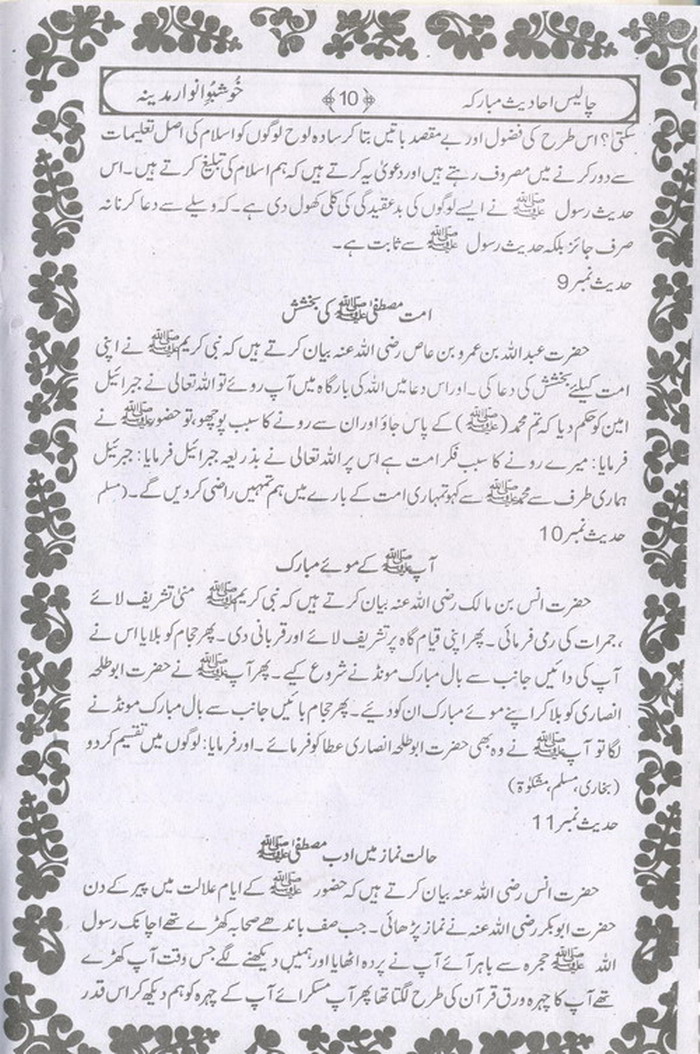 چالیس احادیث مبارکہ ﴿10﴾ خُوشبُؤِ انوار مدینہ
سکتی؟ اس طرح کی فضول اور بے مقصد باتیں بتا کر سادہ لوح لوگوں کو اسلام کی اصل تعلیمات
سے دور کرنے میں مصروف رہتے ہیں اور دعویٰ یہ کرتے ہیں کہ ہم اسلام کی تبلیغ کرتے ہیں۔ اس
حدیث رسول ﷺ نے ایسے لوگوں کی بدعقیدگی کی کلی کھول دی ہے۔ کہ وسیلے سے دعا کرنا نہ
صرف جائز بلکہ حدیث رسول ﷺ سے ثابت ہے۔
حدیث نمبر 9
امت مصطفیٰ ﷺ کی بخشش
حضرت عبداللہ بن عمرو بن عاص رضی اللہ عنہ بیان کرتے ہیں کہ نبی کریم ﷺ نے اپنی
امت کیلئے بخشش کی دعا کی۔ اور اس دعا میں اللہ کی بارگاہ میں آپ روئے تو اللہ تعالی نے جبرائیل
امین کو حکم دیا کہ تم محمد (ﷺ) کے پاس جاؤ اور ان سے رونے کا سبب پوچھو، تو حضور ﷺ نے
فرمایا: میرے رونے کا سبب فکر امت ہے اس پر اللہ تعالی نے بذریعہ جبرائیل فرمایا: جبرئیل
ہماری طرف سے محمد ﷺ سے کہو تمہاری امت کے بارے میں ہم تمہیں راضی کردیں گے۔ (مسلم
حدیث نمبر 10
آپ ﷺ کے موئے مبارک
حضرت انس بن مالک رضی اللہ عنہ بیان کرتے ہیں کہ نبی کریم ﷺ منیٰ تشریف لائے
، جمرات کی رمی فرمائی۔ پھر اپنی قیام گاہ پر تشریف لائے اور قربانی دی۔ پھر حجام کو بلایا اس نے
آپ کی دائیں جانب سے بال مبارک مونڈنے شروع کیے۔ پھر آپ ﷺ نے حضرت ابوطلحہ
انصاری کو بلا کر اپنے موئے مبارک ان کو دیئے۔ پھر حجام بائیں جانب سے بال مبارک مونڈنے
لگا تو آپ ﷺ نے وہ بھی حضرت ابوطلحہ انصاری عطا کو فرمائے۔ اور فرمایا: لوگوں میں تقسیم کردو
(بخاری، مسلم، مشکوٰۃ)
حدیث نمبر 11
حالت نماز میں ادب مصطفیٰ ﷺ
حضرت انس رضی اللہ عنہ بیان کرتے ہیں کہ حضور ﷺ کے ایام علالت میں پیر کے دن
حضرت ابوبکر رضی اللہ عنہ نے نماز پڑھائی۔ جب صف باندھے صحابہ کھڑے تھے اچانک رسول
اللہ ﷺ حجرہ سے باہر آئے آپ نے پردہ اٹھایا اور ہمیں دیکھنے لگے جس وقت آپ کھڑے
تھے آپ کا چہرہ ورق قرآن کی طرح لگتا تھا پھر آپ مسکرائے آپ کے چہرہ کو ہم دیکھ کر اس قدر